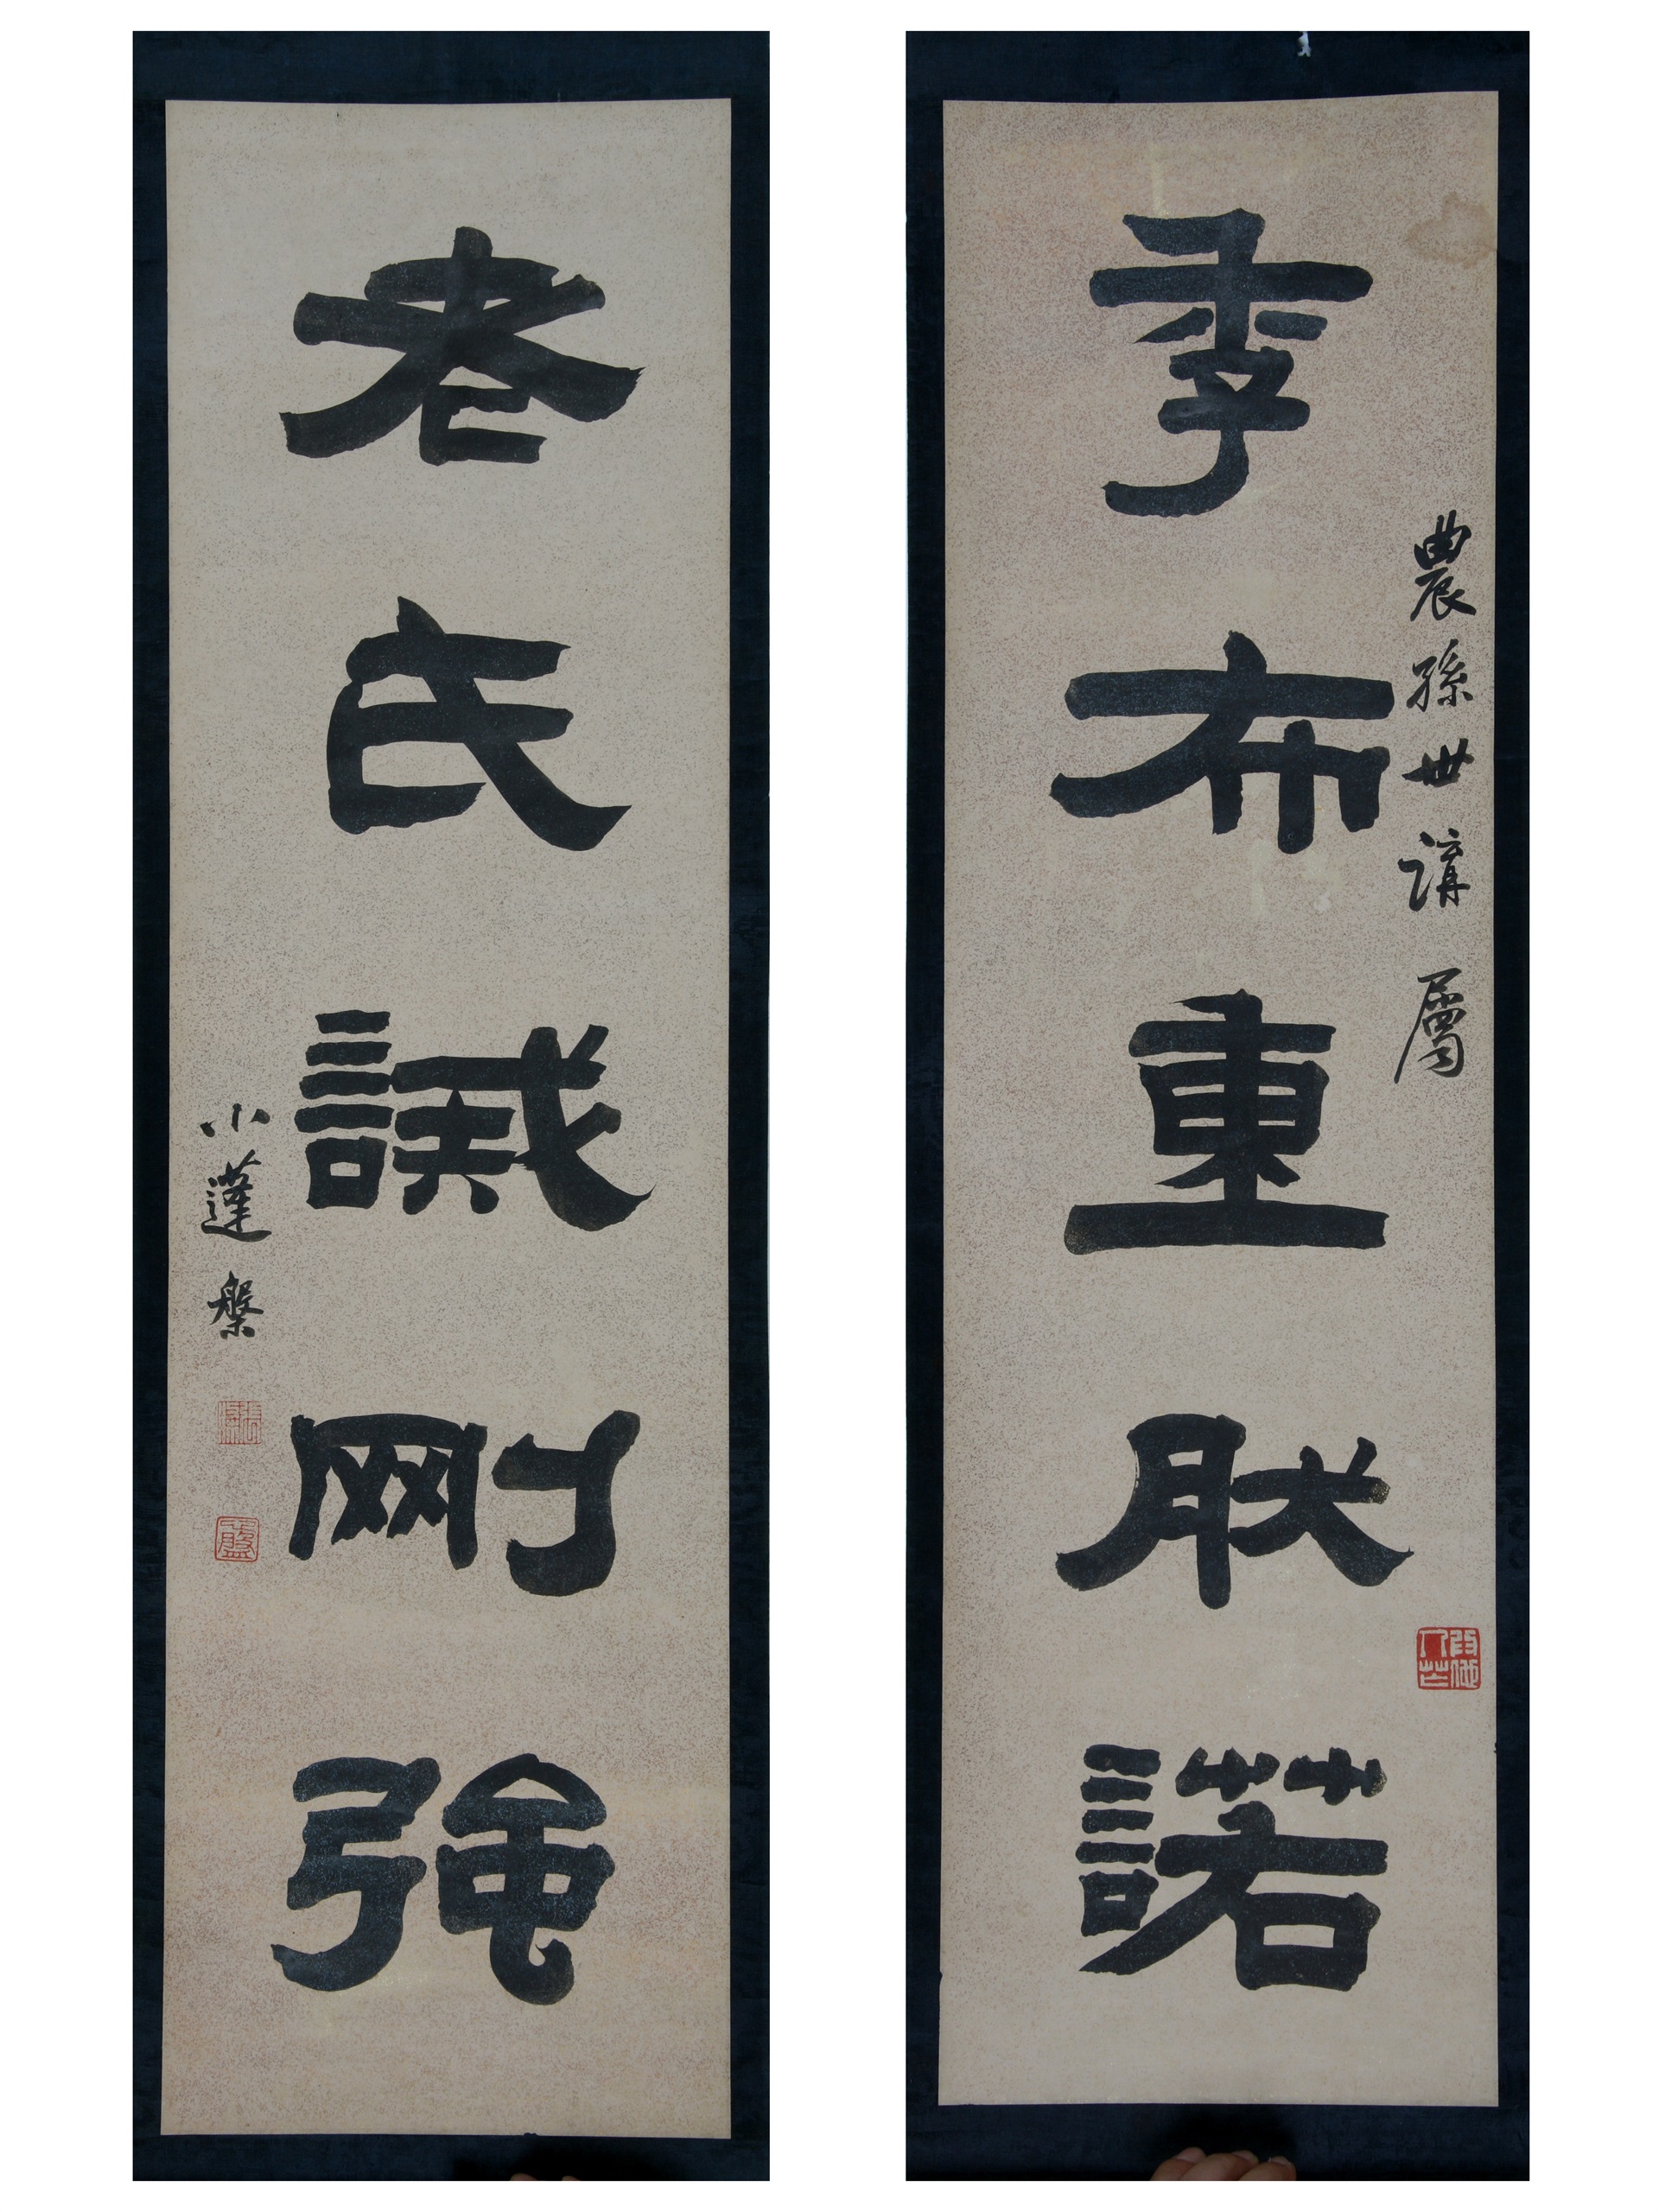 農孫世講屬
季布重肰諾
老氏誡剛強
小蓮槃